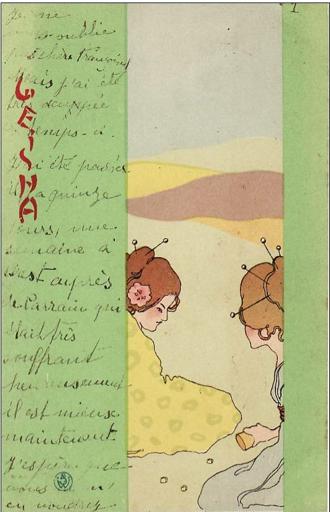 1
GEISHA
Je ne
oublie
chère Françoise
Mais j'ai été
très occupée
temps-ci.
J'ai été
il y a quinze
jours, une
semaine à
l'est auprès
de Parrain qui
était très
souffrant
heureusement
il est mieux
maintenant.
J'espère que